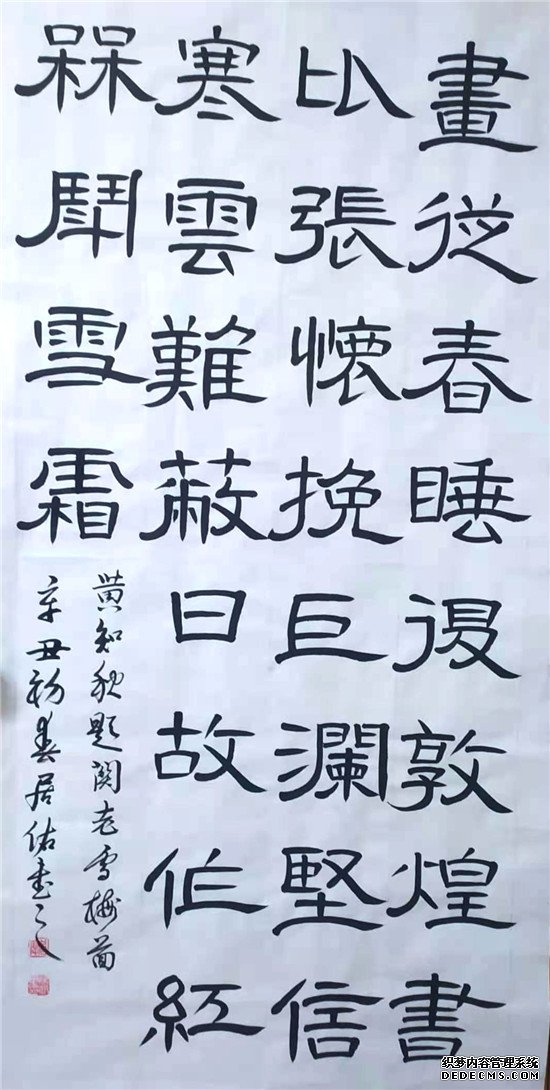 畫從春睡敦煌書
以張懷挽巨瀾堅信
寒雲難蔽日故作紅
槑鬥雪霜
黄知秋題関老雪梅圖
辛丑初春居佑書之
织梦内容管理系统
DEDECMS.COM